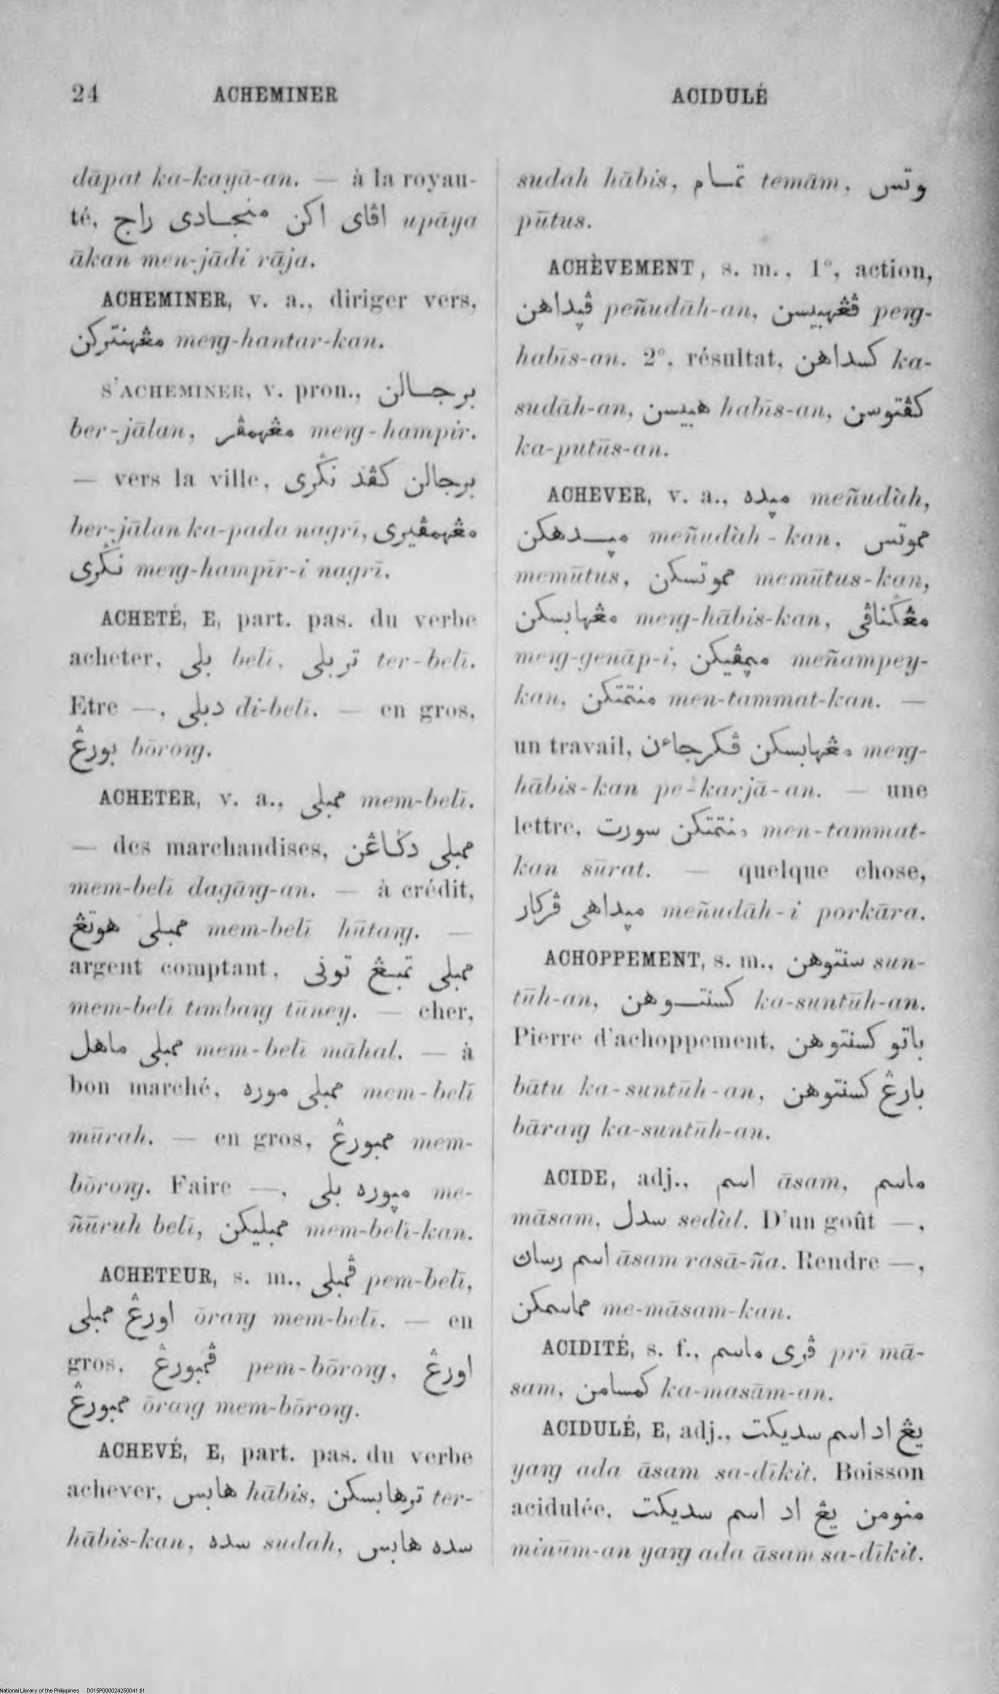 24 ACHEMINER ACIDULÉ
dāpat ka-kayā-an. — à la royau-
té, اڤاى اكن منجادى راج upāya
ākan men-jādi rāja.
ACHEMINER, v. a., diriger vers,
مڠهنتركن meŋ-hantar-kan.
S'ACHEMINER, v. pron., برجالن
ber-jālan, مڠهمڤر meŋ-hampir.
— vers la ville, برجالن كڤد نڬرى
ber-jālan ka-pada nagrī, مڠهمڤيرى
نڬرى meŋ-hampīr-i nagrī.
ACHETÉ, E, part. pas. du verbe
acheter, بلى belī, تربلى ter-belī.
Etre —, دبلى di-belī. — en gros,
بورڠ bōroŋ.
ACHETER, v. a., ممبلى mem-belī.
— des marchandises, ممبلى دڬاڠن
mem-belī dagāŋ-an. — à crédit,
ممبلى هوتڠ mem-belī hūtaŋ. —
argent comptant, ممبلى تمبڠ تونى
mem-belī timbaŋ tūney. — cher,
ممبلى ماهل mem-belī māhal. — à
bon marché, ممبلى موره mem-belī
mūrah. — en gros, ممبورڠ mem-
bōroŋ. Faire —, مڽوره بلى me-
ñūruh belī, ممبليكن mem-belī-kan.
ACHETEUR, s. m., ڤمبلى pem-belī,
اورڠ ممبلى ōraŋ mem-belī. — en
gros, ڤمبورڠ pem-bōroŋ, اورڠ
ممبورڠ ōraŋ mem-bōroŋ.
ACHEVÉ, E, part. pas. du verbe
achever, هابس hābis, ترهابسكن ter-
hābis-kan, سده sudah, سده هابس
sudah hābis, تمام temām, وتس
pūtus.
ACHÈVEMENT, s. m., 1°, action,
ڤڽداهن peñudāh-an, ڤڠهبيسن peŋ-
habīs-an. 2°, résultat, كسداهن ka-
sudāh-an, هبيسن habīs-an, كڤتوسن
ka-putūs-an.
ACHEVER, v. a., مڽده meñudùh,
مڽدهكن meñudàh-kan, موتس
memūtus, موتسكن memūtus-kan,
مڠهابسكن meŋ-hābis-kan, مڠڬناڤى
meŋ-genāp-i, مڽمڤيكن meñampey-
kan, منتمتكن men-tammat-kan. —
un travail, مڠهابسكن ڤكرجاءن meŋ-
hābis-kan pe-karjā-an. — une
lettre, منتمتكن سورت men-tammat-
kan sūrat. — quelque chose,
مڽداهى ڤركار meñudāh-i porkāra.
ACHOPPEMENT, s. m., سنتوهن sun-
tūh-an, كسنتوهن ka-suntūh-an.
Pierre d'achoppement, باتو كسنتوهن
bātu ka-suntūh-an, بارڠ كسنتوهن
bāraŋ ka-suntūh-an.
ACIDE, adj., اسم āsam, ماسم
māsam, سدل sedùl. D'un goût —,
اسم رساڽ āsam rasā-ña. Rendre —,
مماسمكن me-māsam-kan.
ACIDITÉ, s. f., ڤرى ماسم prī mā-
sam, كمسامن ka-masām-an.
ACIDULÉ, E, adj., يڠ اد اسم سديكت
yaŋ ada āsam sa-dīkit. Boisson
acidulée, منومن يڠ اد اسم سديكت
minūm-an yaŋ ada āsam sa-dīkit.
National Library of the Philippines